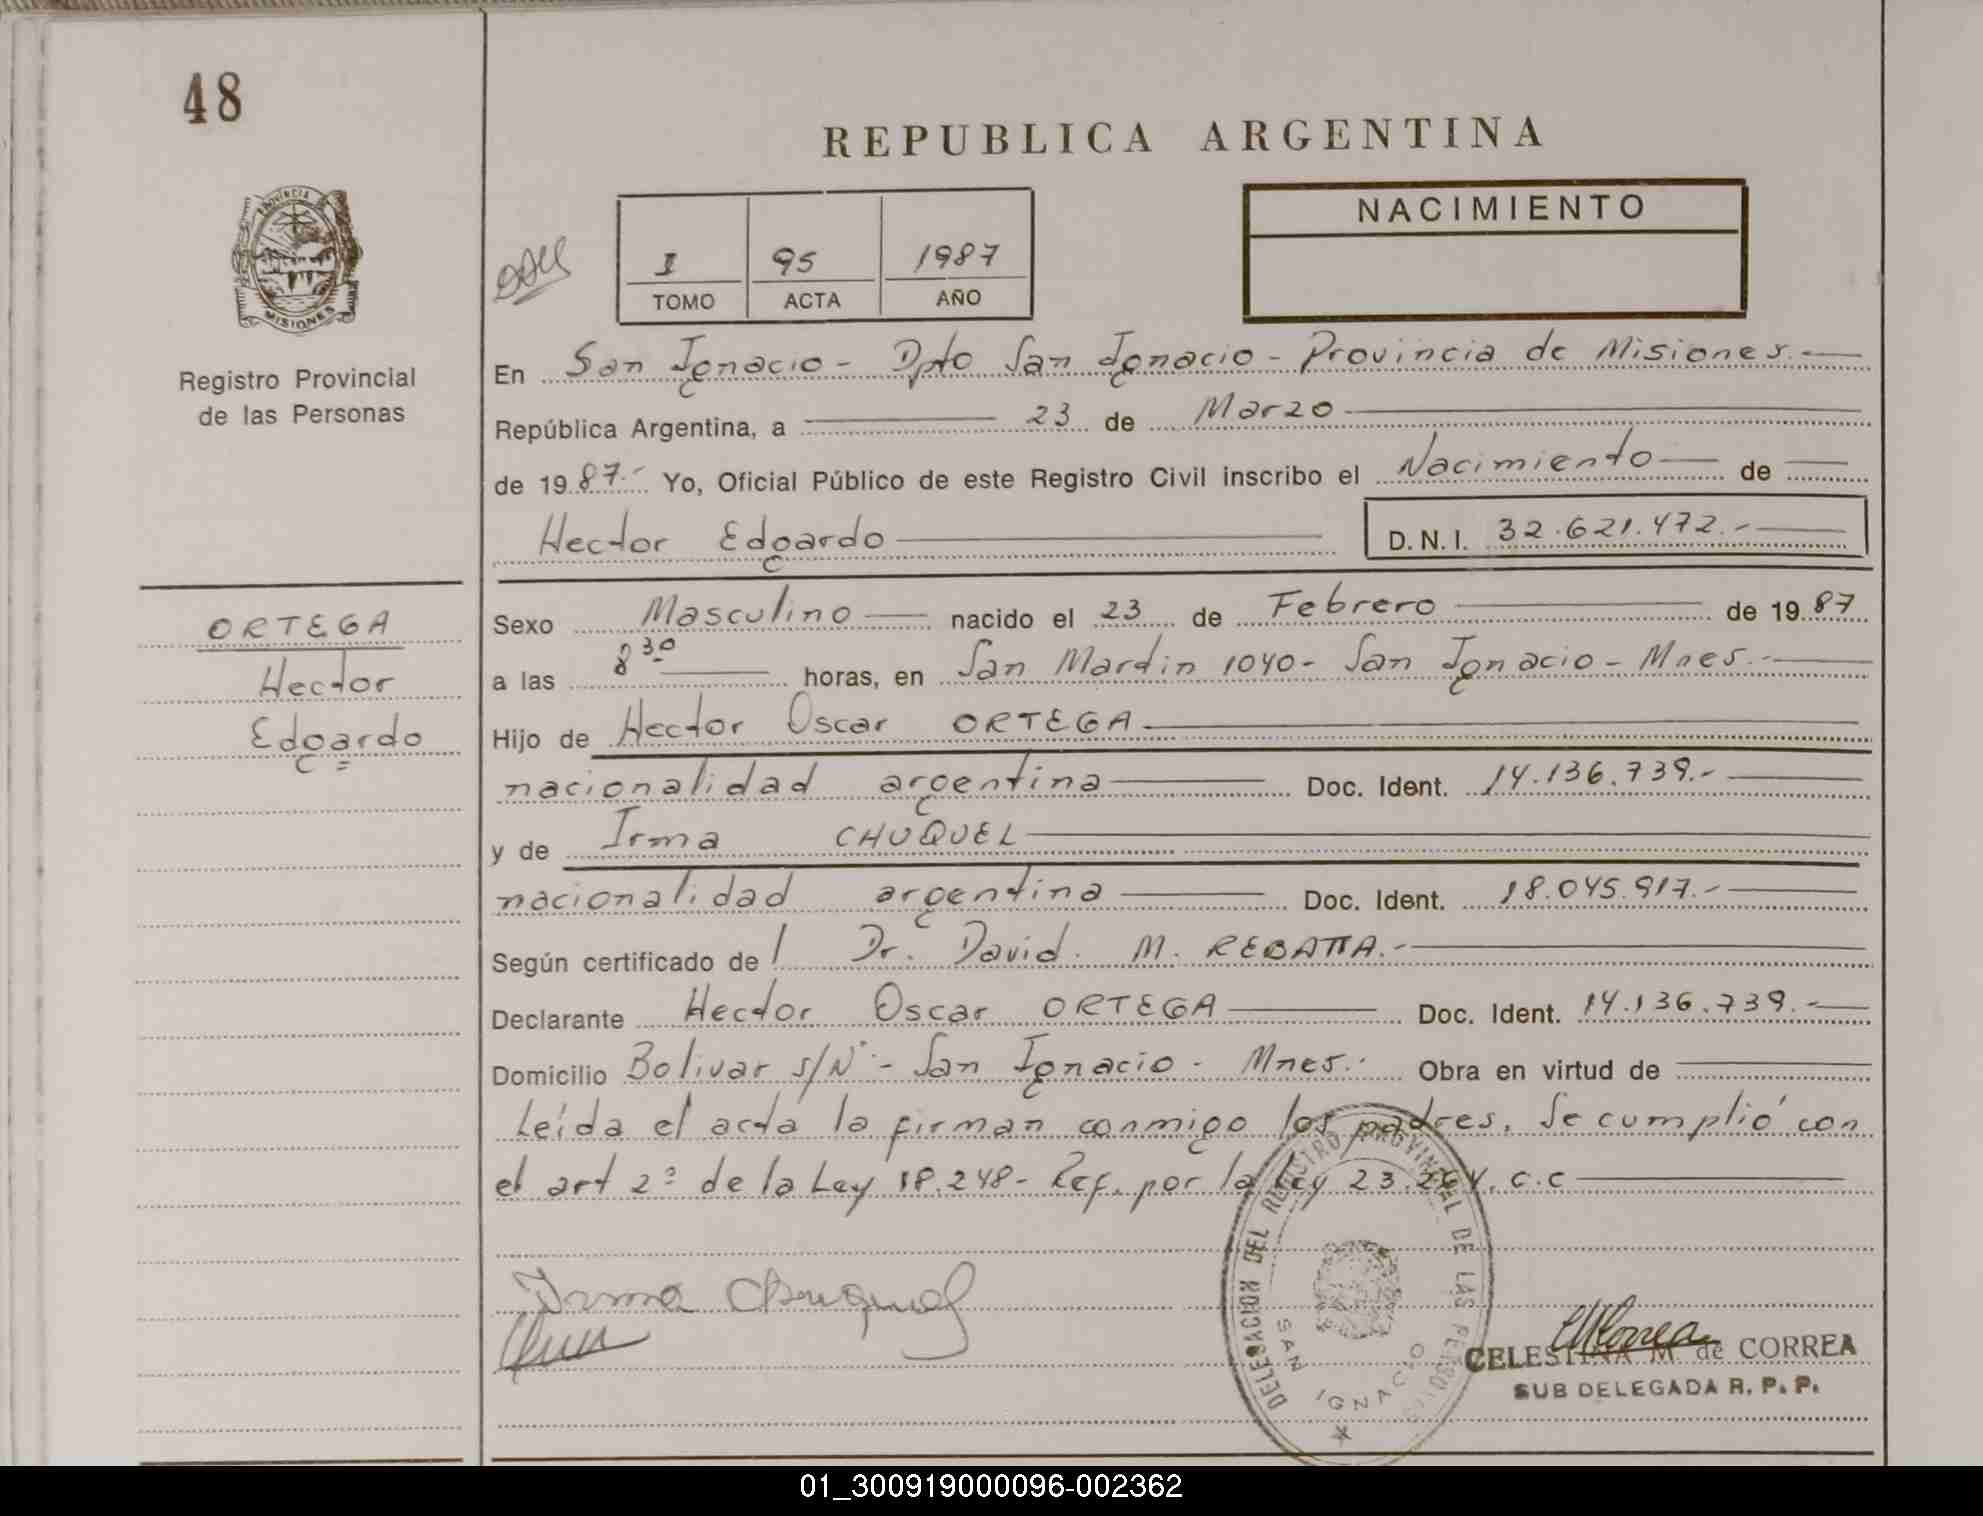 48
REPUBLICA ARGENTINA
PROVINCIA DE
MISIONES
Registro Provincial
de las Personas
I 95 1987
TOMO ACTA AÑO
NACIMIENTO
En San Ignacio - Dpto San Ignacio - Provincia de Misiones.-
República Argentina, a 23 de Marzo
de 1987.- Yo, Oficial Público de este Registro Civil inscribo el Nacimiento de
Hector Edgardo D.N.I. 32.621.472.-
ORTEGA
Hector
Edgardo
Sexo Masculino nacido el 23 de Febrero de 1987
a las 8 30 horas, en San Martin 1040 - San Ignacio - Mnes.-
Hijo de Hector Oscar ORTEGA
nacionalidad argentina Doc. Ident. 14.136.739.-
y de Irma CHUQUEL
nacionalidad argentina Doc. Ident. 18.045.917.-
Según certificado de / Dr. David. M.
Declarante Hector Oscar ORTEGA Doc. Ident. 14.136.739.-
Domicilio Bolivar s/Nº - San Ignacio - Mnes. Obra en virtud de
Leída el acta la firman conmigo los padres. Se cumplió con
el art 2º de la Ley 18.248 - Ref. por la Ley 23.264. C.C
Irma Chuquel
DELEGACION DEL REGISTRO PROVINCIAL DE LAS PERSONAS
SAN IGNACIO
CELESTINA M. de CORREA
SUB DELEGADA R. P. P.
01_300919000096-002362